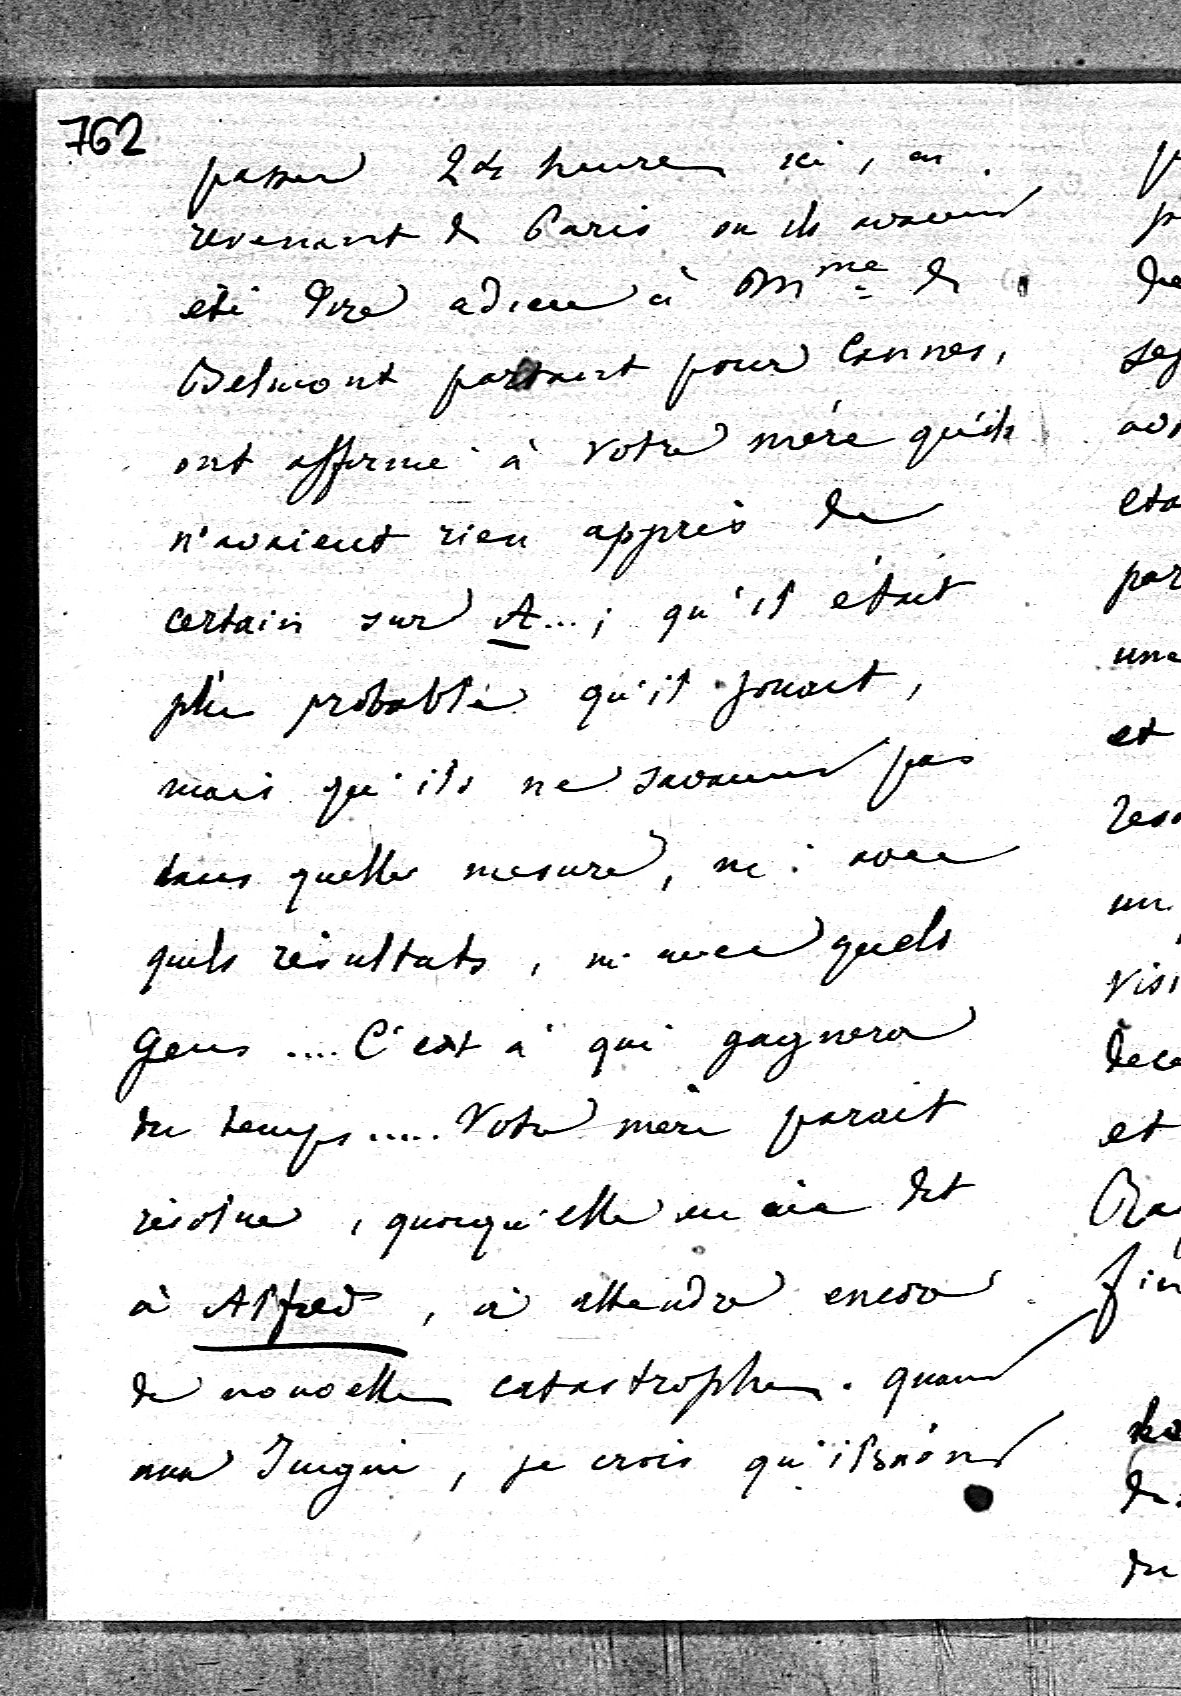 762
passer 24 heures ici, en
revenant de Paris ou ils avaient
été dire adieu à Mme de
Belmont partant pour Cannes,
ont affirmé à votre mère qu'ils
n'avaient rien appris de
certain sur A...; qu'il était
plus probable qu'il jouait,
mais qu'ils ne savaient pas
dans quelle mesure, ni avec
quels résultats, ni avec quels
gens .... C'est à qui gagnera
du temps ..... Votre mère parait
résolue, quoiqu'elle en aie dit
à Alfred, à attendre encore
de nouvelles catastrophes. quand
aux Juigné, je crois qu'ils n'ont